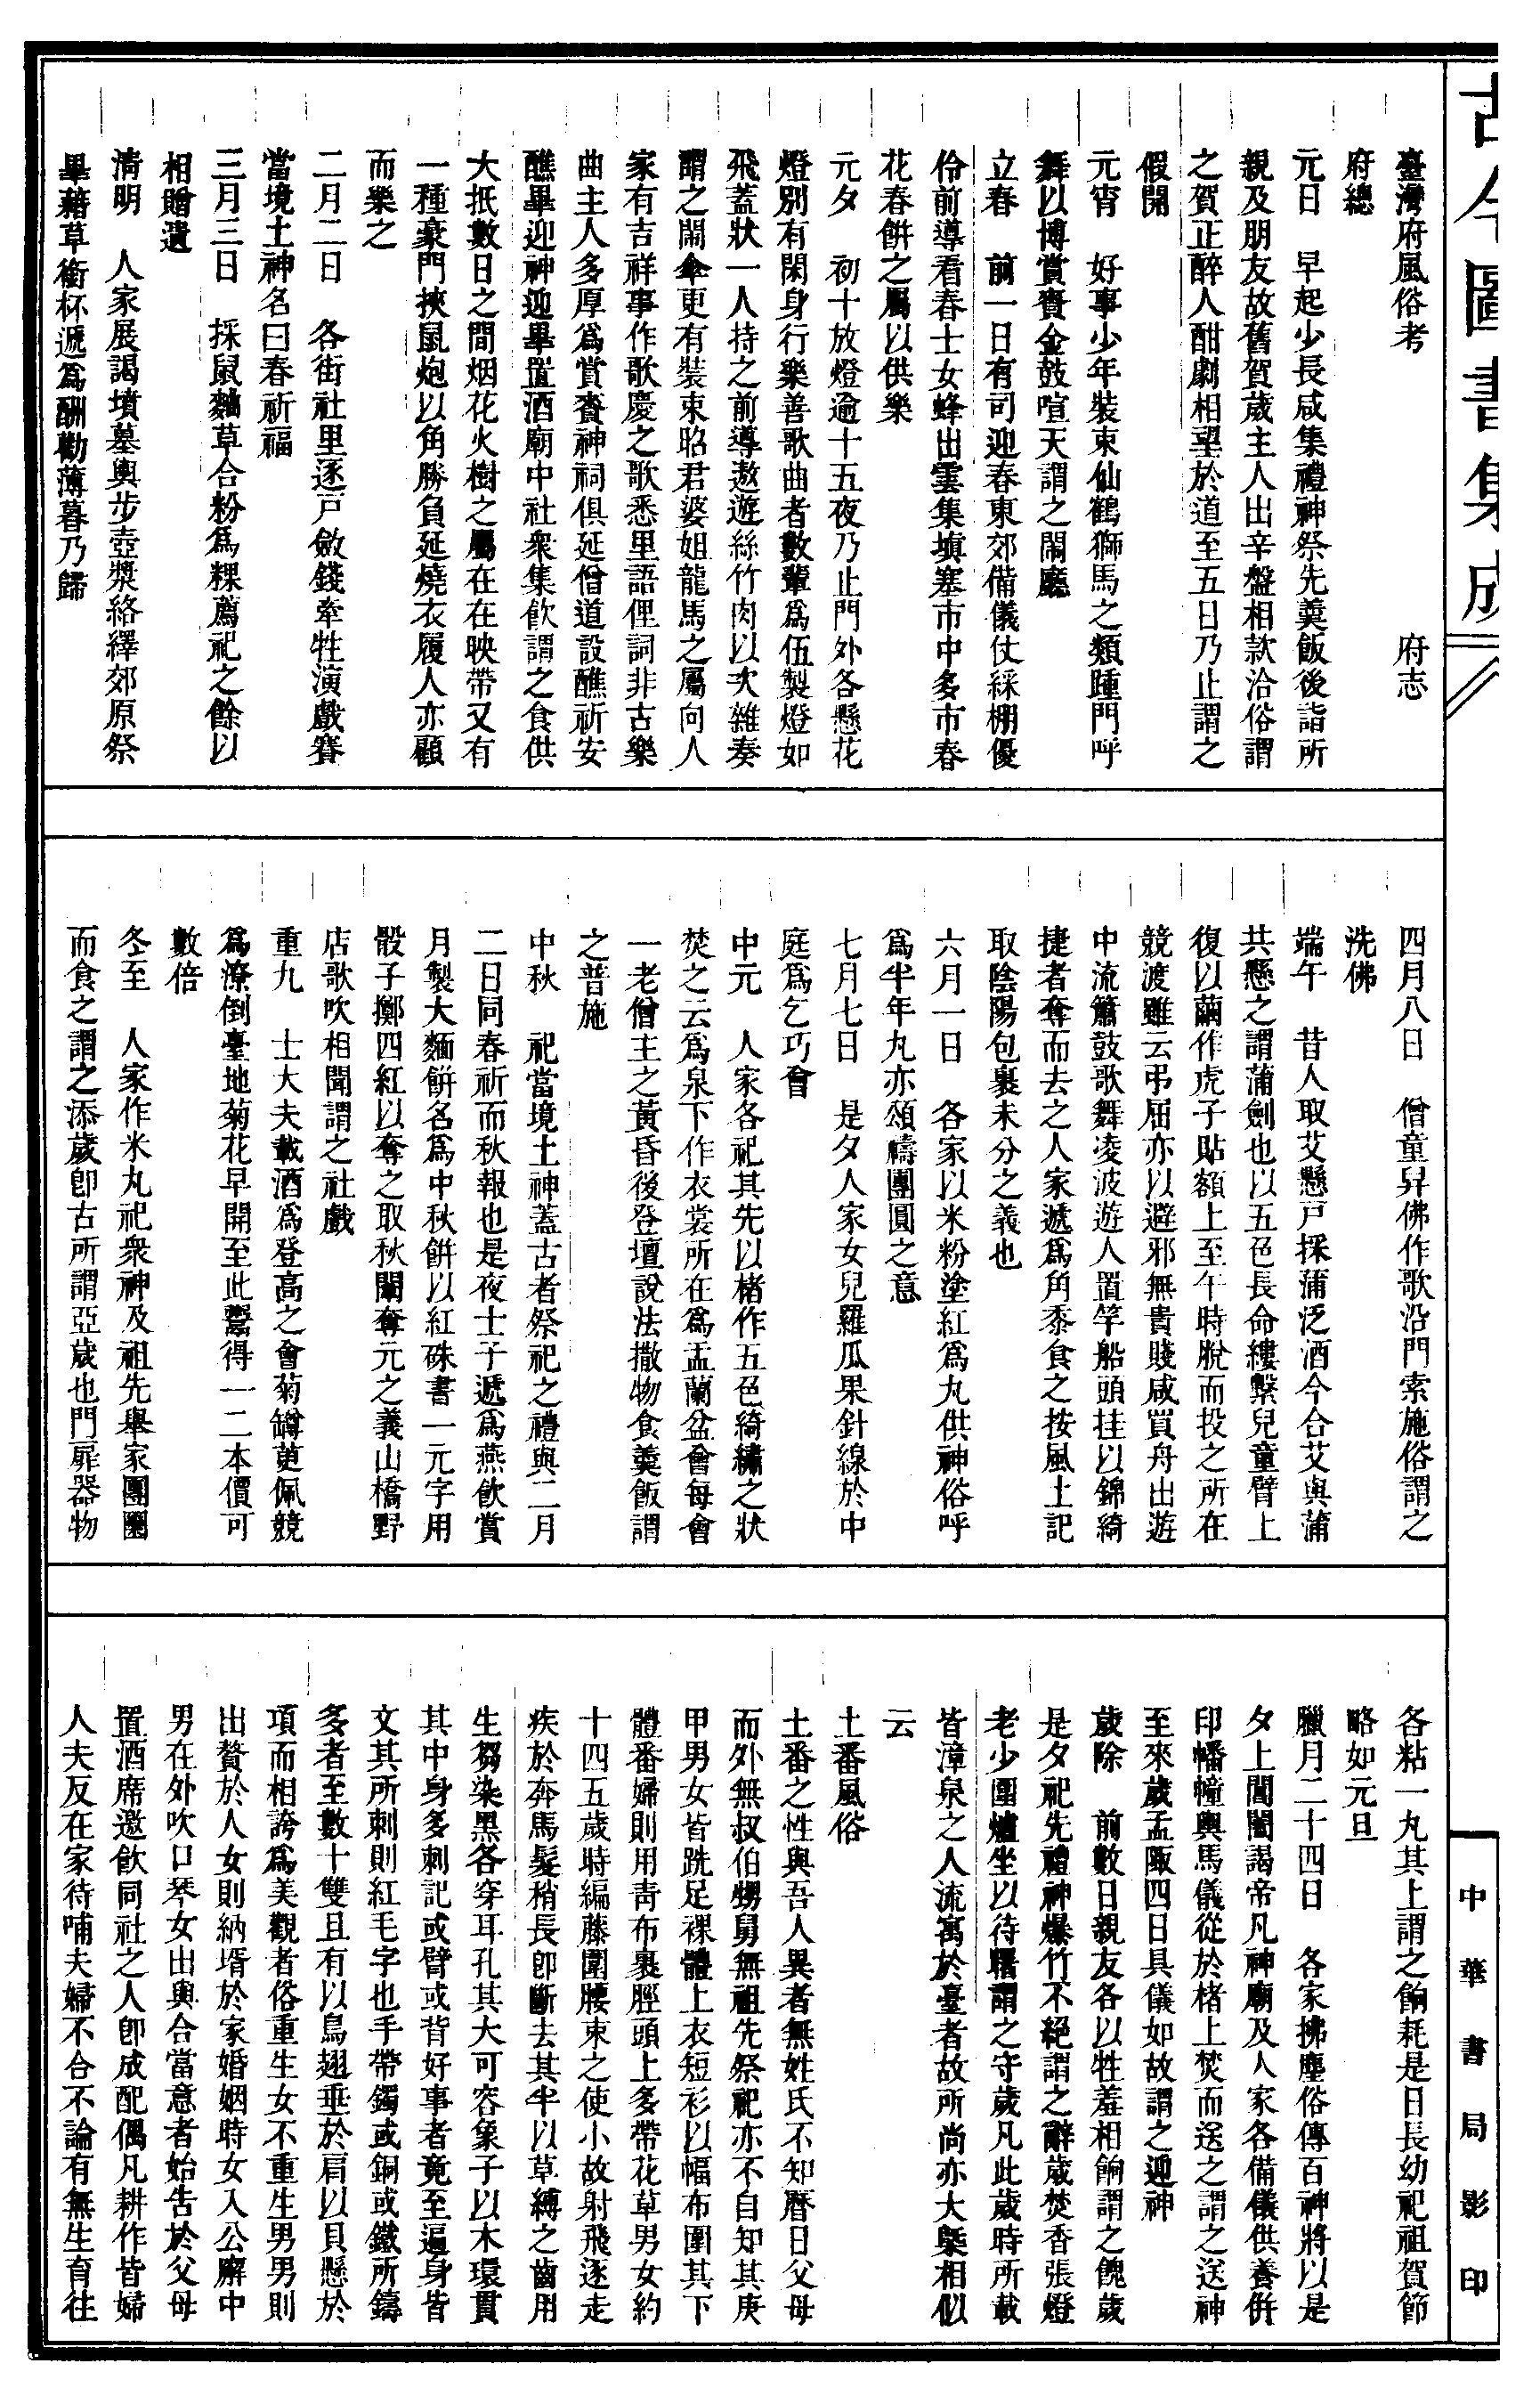 古今圖書集成
臺灣府風俗考　府志
府總
元日　早起少長咸集禮神祭先羹飯後詣所
親及朋友故舊賀歲主人出辛盤相款洽俗謂
之賀正醉人酣劇相望於道至五日乃止謂之
假開
元宵　好事少年裝束仙鶴獅馬之類踵門呼
舞以博賞賚金鼓喧天謂之鬧廳
立春　前一日有司迎春東郊備儀仗綵棚優
伶前導看春士女蜂出雲集塡塞市中多市春
花春餠之屬以供樂
元夕　初十放燈逾十五夜乃止門外各懸花
燈別有閑身行樂善歌曲者數輩爲伍製燈如
飛蓋狀一人持之前導遨遊絲竹肉以次雜奏
謂之鬧傘更有裝束昭君婆姐龍馬之屬向人
家有吉祥事作歌慶之歌悉里語俚詞非古樂
曲主人多厚爲賞賚神祠俱延僧道設醮祈安
醮畢迎神迎畢置酒廟中社衆集飮謂之食供
大抵數日之間烟花火樹之屬在在映帶又有
一種豪門挾鼠炮以角勝負延燒衣履人亦顧
而樂之
二月二日　各街社里逐戸斂錢牽牲演戲賽
當境土神名曰春祈福
三月三日　採鼠麯草合粉爲粿薦祀之餘以
相贈遺
淸明　人家展謁墳墓輿步壺漿絡繹郊原祭
畢藉草銜杯遞爲酬勸薄暮乃歸
四月八日　僧童舁佛作歌沿門索施俗謂之
洗佛
端午　昔人取艾懸戸採蒲泛酒今合艾與蒲
共懸之謂蒲劍也以五色長命縷繫兒童臂上
復以繭作虎子貼額上至午時脫而投之所在
競渡雖云弔屈亦以避邪無貴賤咸買舟出遊
中流簫鼓歌舞凌波遊人置竿船頭挂以錦綺
捷者奪而去之人家遞爲角黍食之按風土記
取陰陽包裹未分之義也
六月一日　各家以米粉塗紅爲丸供神俗呼
爲半年丸亦頌禱團圓之意
七月七日　是夕人家女兒羅瓜果針線於中
庭爲乞巧會
中元　人家各祀其先以楮作五色綺繡之狀
焚之云爲泉下作衣裳所在爲盂蘭盆會每會
一老僧主之黃昏後登壇說法撒物食羹飯謂
之普施
中秋　祀當境土神蓋古者祭祀之禮與二月
二日同春祈而秋報也是夜士子遞爲燕飮賞
月製大麵餠名爲中秋餠以紅硃書一元字用
骰子擲四紅以奪之取秋闈奪元之義山橋野
店歌吹相聞謂之社戲
重九　士大夫載酒爲登高之會菊罇萸佩競
爲潦倒臺地菊花早開至此鬻得一二本價可
數倍
冬至　人家作米丸祀衆神及祖先舉家團圞
而食之謂之添歲卽古所謂亞歲也門扉器物
各粘一丸其上謂之餉耗是日長幼祀祖賀節
略如元旦
臘月二十四日　各家拂塵俗傳百神將以是
夕上閶闔謁帝凡神廟及人家各備儀供養併
印幡幢輿馬儀從於楮上焚而送之謂之送神
至來歲孟陬四日具儀如故謂之迎神
歲除　前數日親友各以牲羞相餉謂之餽歲
是夕祀先禮神爆竹不絕謂之辭歲焚香張燈
老少圍爐坐以待曙謂之守歲凡此歲時所載
皆漳泉之人流寓於臺者故所尚亦大槩相似
云
土番風俗
土番之性與吾人異者無姓氏不知曆日父母
而外無叔伯甥舅無祖先祭祀亦不自知其庚
甲男女皆跣足裸體上衣短衫以幅布圍其下
體番婦則用靑布裹脛頭上多帶花草男女約
十四五歲時編藤圍腰束之使小故射飛逐走
疾於奔馬髮稍長卽斷去其半以草縛之齒用
生芻染黑各穿耳孔其大可容象子以木環貫
其中身多刺記或臂或背好事者竟至遍身皆
文其所刺則紅毛字也手帶鐲或銅或鐵所鑄
多者至數十雙且有以鳥翅垂於肩以貝懸於
項而相誇爲美觀者俗重生女不重生男男則
出贅於人女則納壻於家婚姻時女入公廨中
男在外吹口琴女出與合當意者始告於父母
置酒席邀飮同社之人卽成配偶凡耕作皆婦
人夫反在家待哺夫婦不合不論有無生育往
中華書局影印